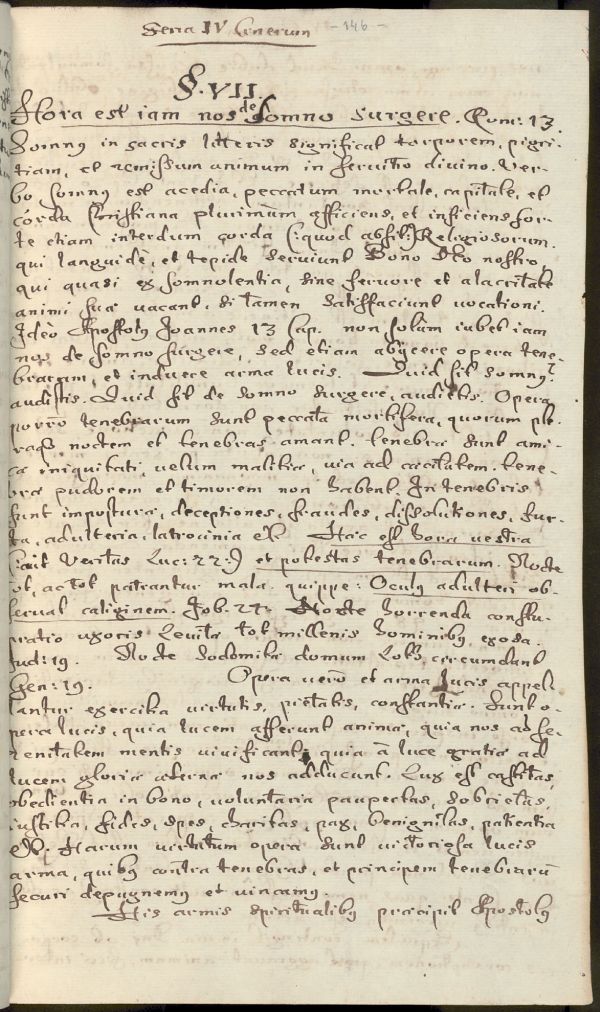 Feria IV Cinerum - 146 -
§. VII.
Hora est iam nos de Somno surgere. Rom: 13.
Somnus in sacris litteris significat torporem, pigri-
tiam, et remissum animum in servitio divino. Ver-
bo Somnus est acedia, peccatum mortale, capitale, et
corda Christiana plurimùm afficiens, et inficiens for-
te etiam interdum corda (: quod absit :) Religiosorum.
qui languidè, et tepide serviunt Domino Deo nostro,
qui quasi ex somnolentia, sine fervore et alacritate
animi sua vacant, si tamen satisfaciunt vocationi.
Ideò Apostolus Joannes 13 Cap. non solùm iubet iam
nos de somno surgere, sed etiam abijcere opera tene-
brarum, et induere arma lucis. Quid sit somnus?
audistis. Quid sit de somno surgere, audietis. Opera
porrò tenebrarum sunt peccata mortifera, quorum ple-
raque noctem et tenebras amant. tenebræ sunt ami-
cæ iniquitati, velum malitiæ, via ad cæcitatem. tene-
bræ pudorem et timorem non habent. In tenebris
sunt imposturæ, deceptiones, fraudes, dissolutiones, fur-
ta, adulteria, latrocinia etc. Hæc est hora vestra
(: ait Veritas Luc: 22 :) et potestas tenebrarum. Nocte
tot, ac tot patrantur mala. quippe: Oculus adulteri ob-
servat caliginem. Job. 24. Nocte horrenda constu-
pratio uxoris Levitæ tot millenis hominibus exosa.
Jud: 19. Nocte Sodomitæ domum Loth circumdant
Gen: 19. Opera verò et arma lucis appel-
lantur exercitia virtutis, pietatis, constantiæ. Sunt o-
pera lucis, quia lucem afferunt animæ, quia nos ad se-
renitatem mentis vivificant, quia à luce gratiæ ad
lucem gloriæ æternæ nos adducunt. Lux est castitas,
obedientia in bono, voluntaria paupertas, sobrietas,
iustitia, fides, spes, charitas, pax, benignitas, patientia
etc. Harum virtutum opera sunt victoriosa lucis
arma, quibus contra tenebras, et principem tenebrarum
securi depugnemus et vincamus.
His armis spiritualibus præcipit Apostolus